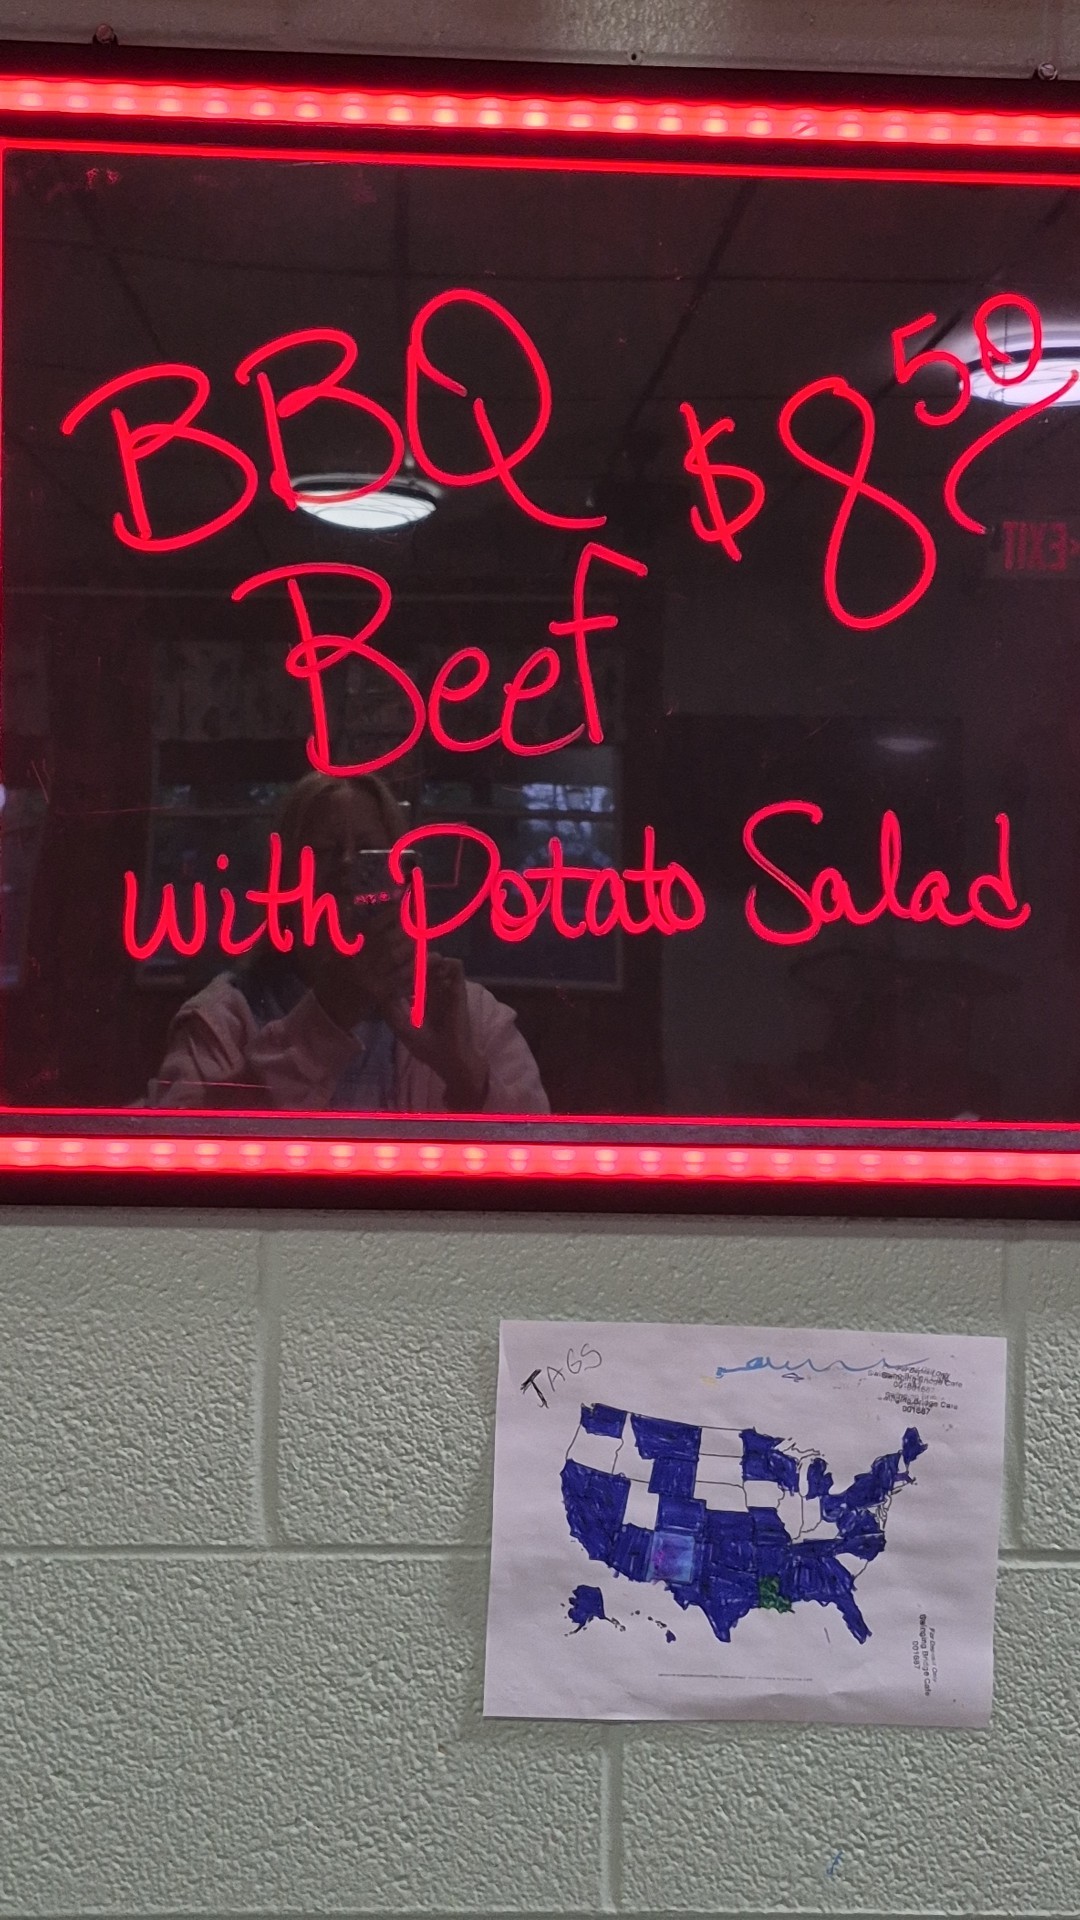 BBQ $8.50
Beef
with Potato Salad
EXIT
TAGS
Swinging Bridge Cafe
001687
For Deposit Only
Swinging Bridge Cafe
001687